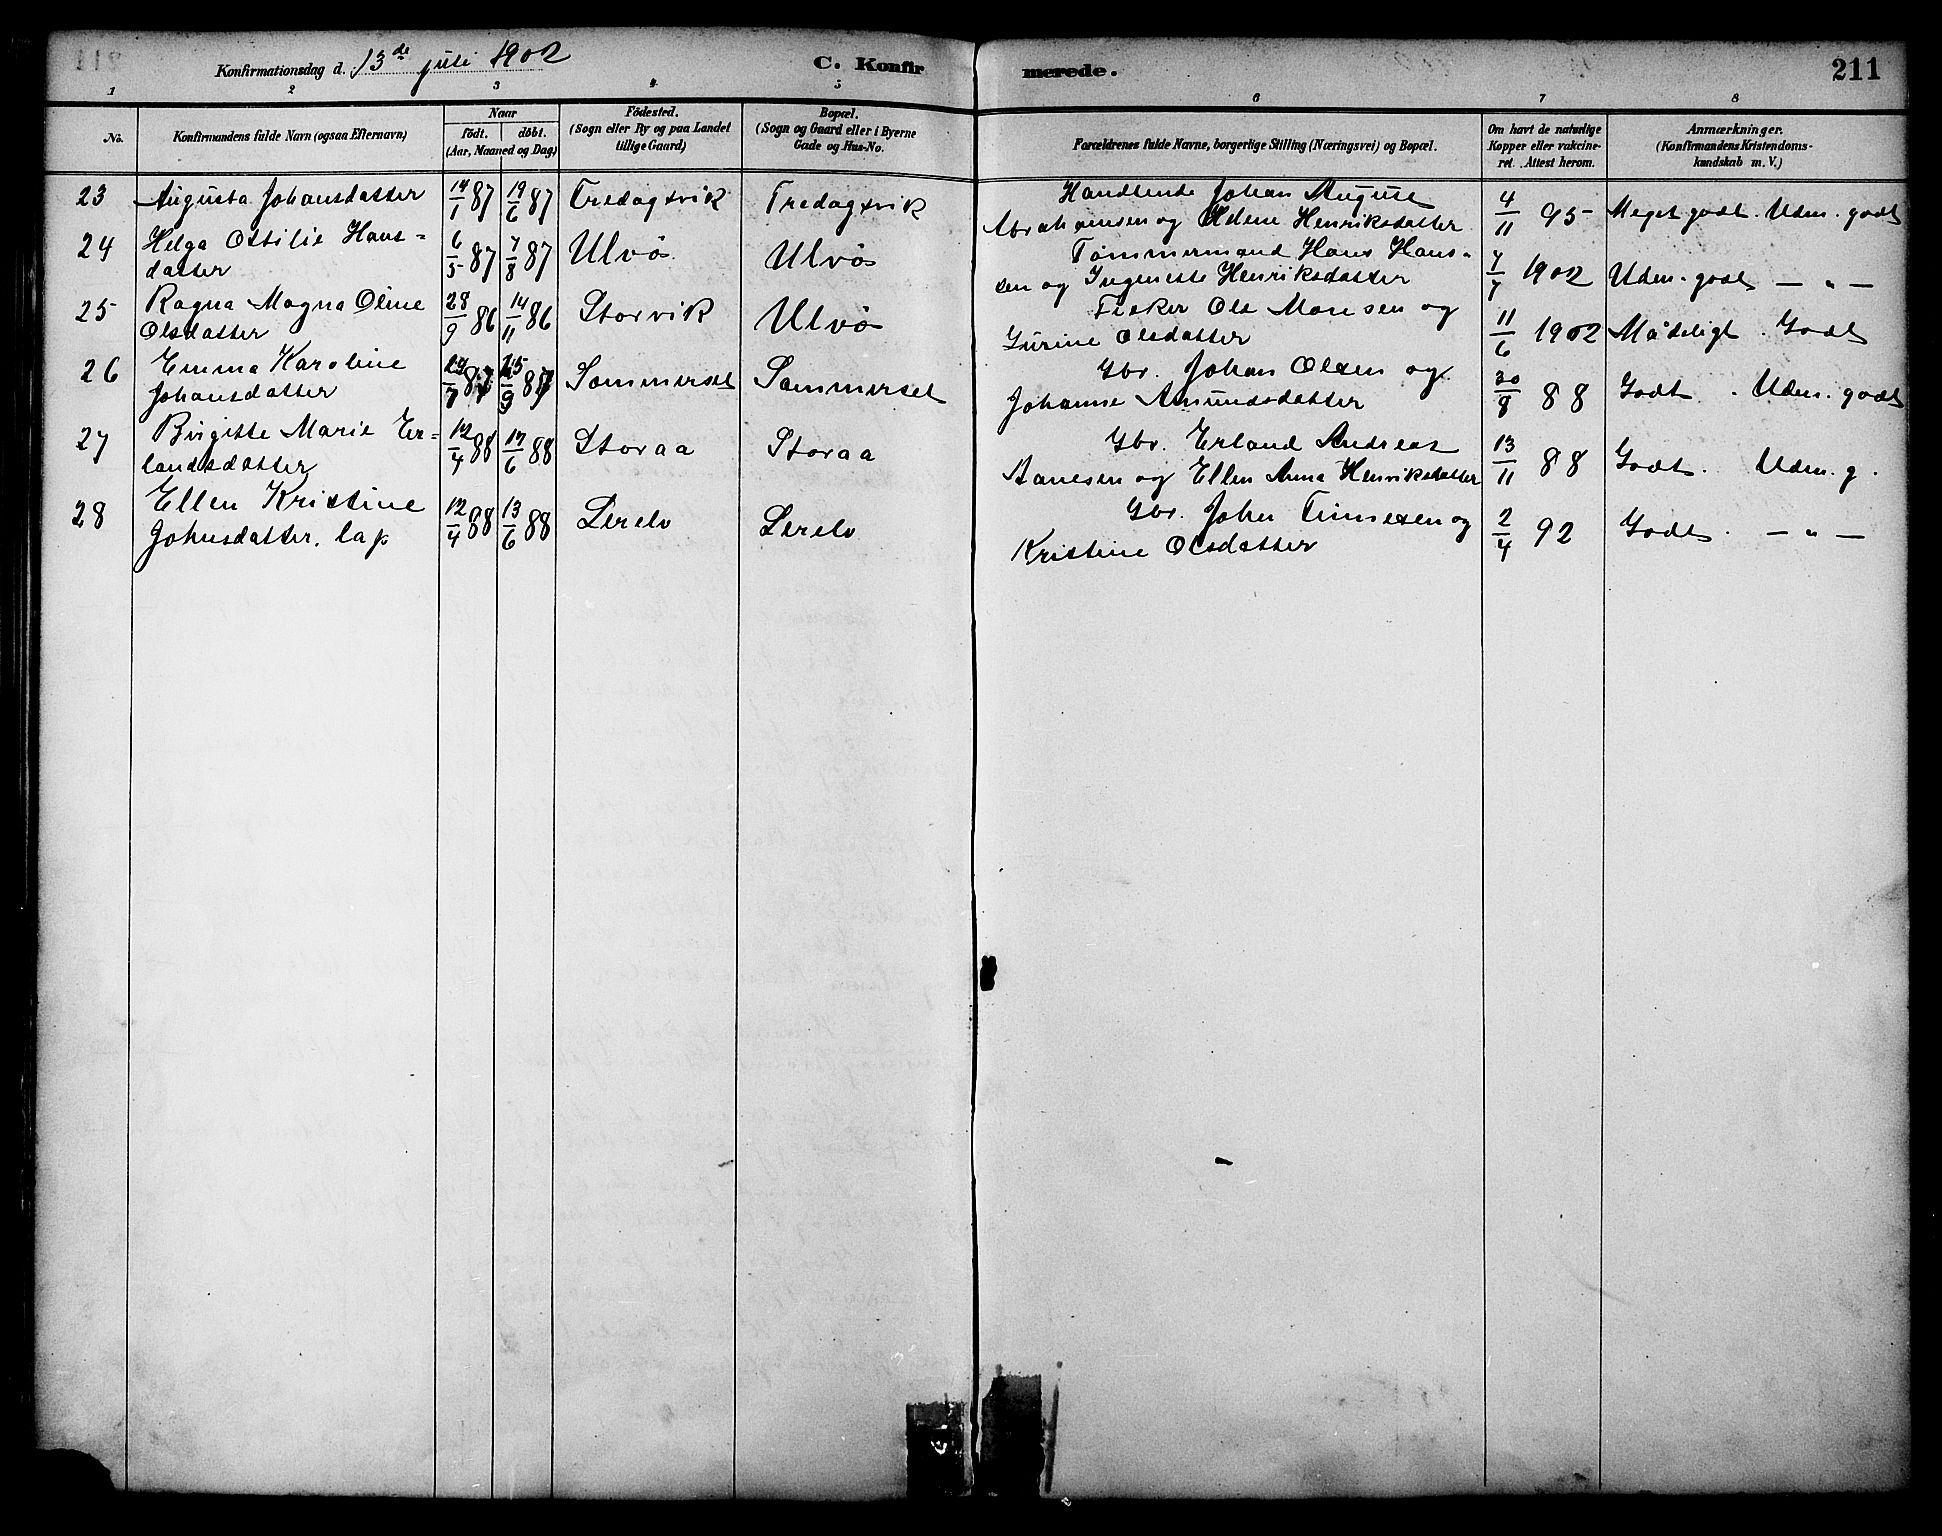 Konfirmationsdag d. 13de juli 1902
C. Konfirmerede.
211
1 2 3 4 5 6 7 8
No.
Konfirmandens fulde Navn (ogsaa Efternavn)
Naar
födt. döbt.
(Aar, Maaned og Dag)
Födested.
(Sogn eller By og paa Landet
tillige Gaard)
Bopæl.
(Sogn og Gaard eller i Byerne
Gade og Hus-No.
Forældrenes fulde Navne, borgerlige Stilling (Næringsvei) og Bopæl.
Om havt de naturlige
Kopper eller vakcine-
ret. Attest herom.
Anmærkninger.
(Konfirmandens Kristendoms-
kundskab m. V.)
23 Augusta Johansdatter 14/1 87 19/6 87 Fredagsvik Fredagsvik Handlende Johan August
Abrahamsen og Henriksdatter 4/11 95 Meget godt. Udm. godt
24 Helga Ottilie Hans-
datter 6/5 87 7/8 87 Ulvö Ulvö Tømmermand Hans Hans-
sen og Ingeneste Henriksdatter 7/7 1902 Udm. godt — " —
25 Ragna Magna Oline
Olsdatter 28/9 86 14/11 86 Storvik Ulvö Fisker Ols Monsen og
Gurine Olsdatter 11/6 1902 Mådeligt. Godt
26 Emma Karoline
Johansdatter 87 87 Sommerset Sommerset Gbr. Johan Olsen og
Johanne Amundsdatter 30/8 88 Godt. Udm. godt
27 Birgitte Marie Er-
landsdatter 12/4 88 17/6 88 Storaa Storaa Gbr. Erland Andreas
Aanesen og Ellen Anna Henriksdatter 13/11 88 Godt. Udm. g.
28 Ellen Kristine
Johnsdatter. lap 12/4 88 13/6 88 Lerelv Lerelv Gbr. John og
Kristine Olsdatter 2/4 92 Godt. — " —